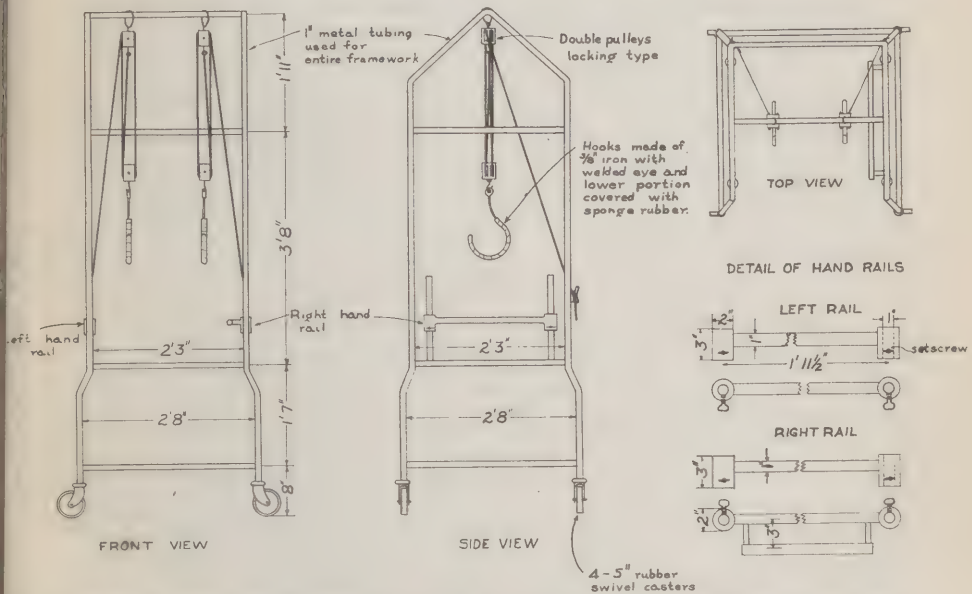 1" metal tubing
used for
entire framework
1'11"
3'8"
Left hand
rail
Right hand
rail
2'3"
2'8"
1'7"
8"
FRONT VIEW
Double pulleys
locking type
Hooks made of
3/8" iron with
welded eye and
lower portion
covered with
sponge rubber.
2'3"
2'8"
SIDE VIEW
4-5" rubber
swivel casters
TOP VIEW
DETAIL OF HAND RAILS
LEFT RAIL
2"
1"
3"
1"
setscrew
1' 11 1/2"
RIGHT RAIL
3"
1"
2"
3"